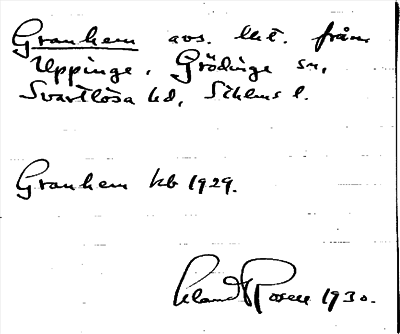 Granhem avs. lht. från
Uppinge, Grödinge sn,
Svartlösa hd, Sthlms l.
Granhem kb 1929.
Rosell 1930.